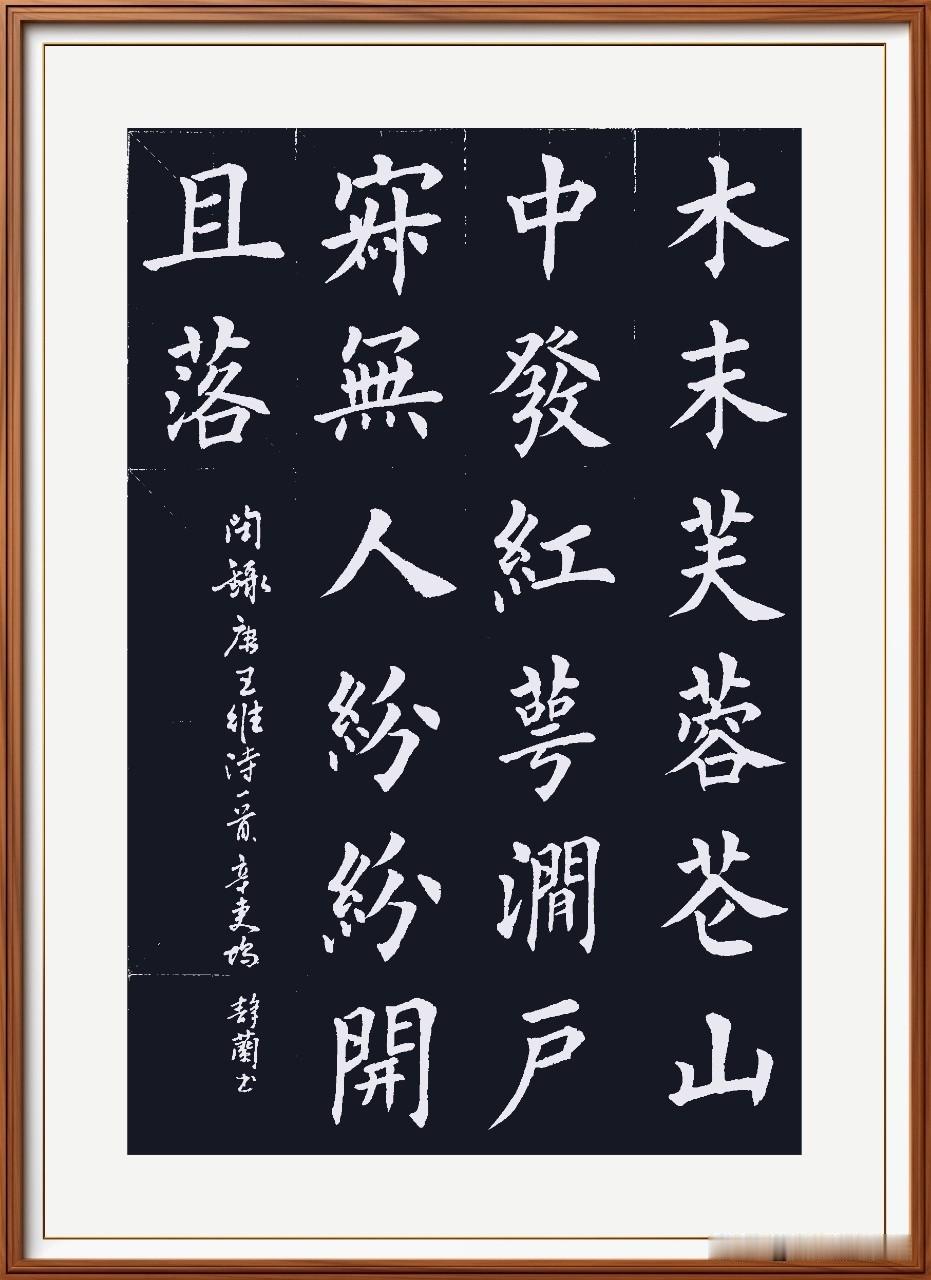 木末芙蓉花山
中發紅萼澗戶
寂無人紛紛開
且落
錄唐王維詩一首辛夷塢 靜蘭书